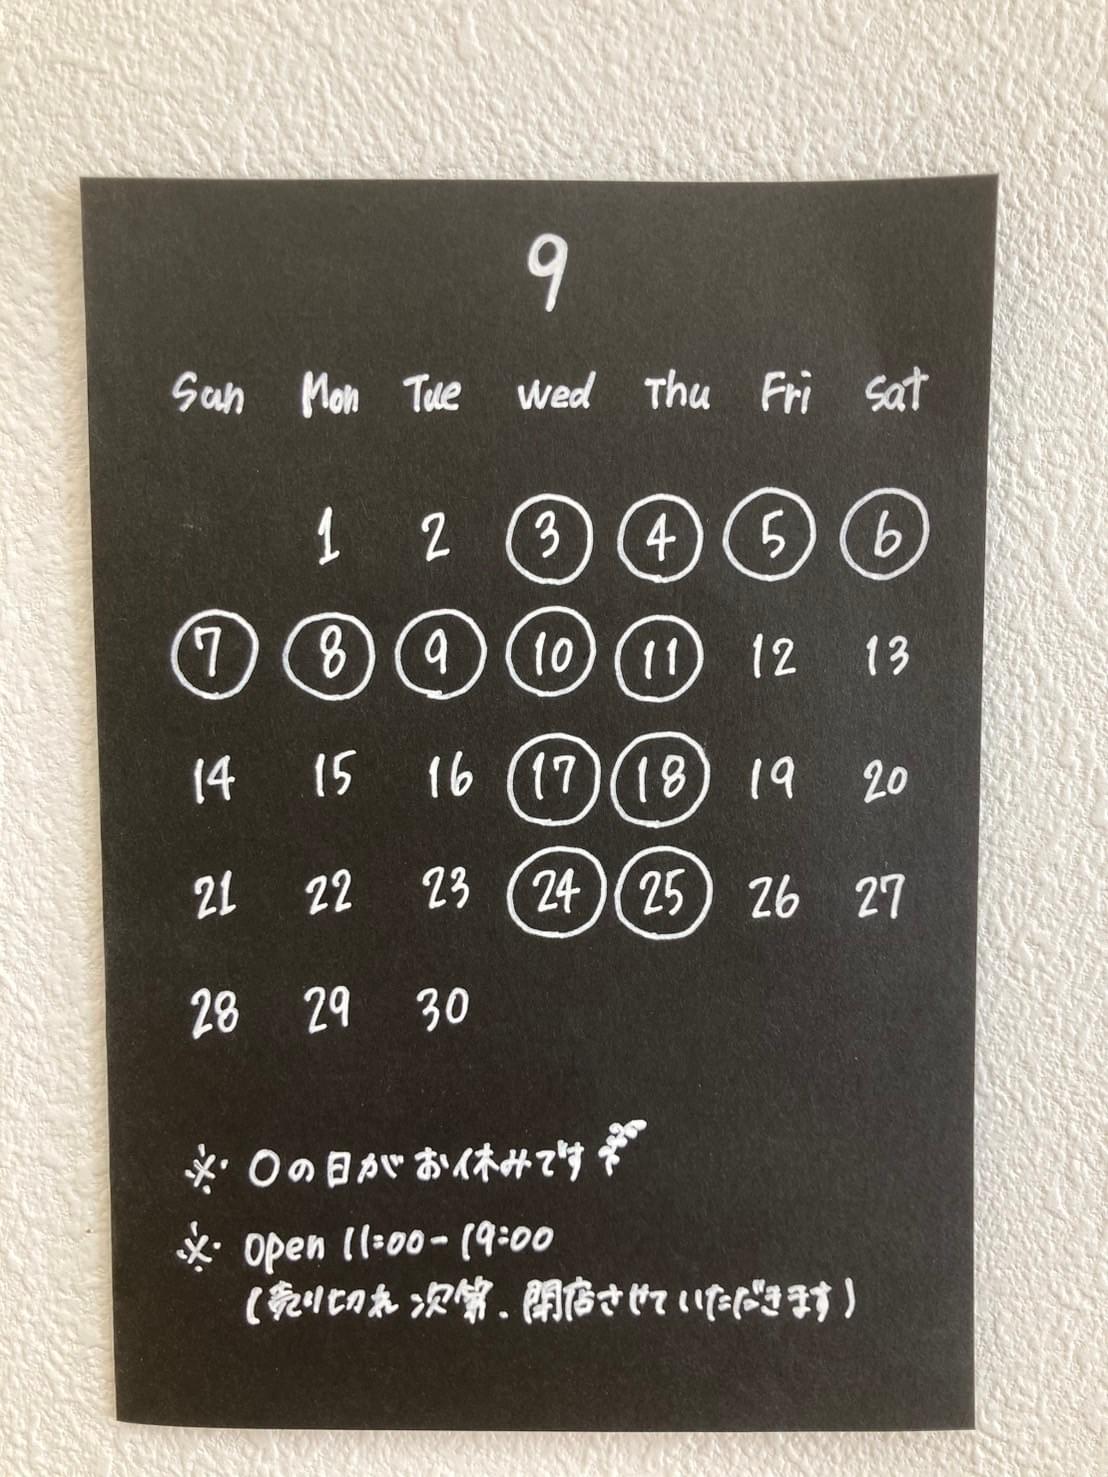 9
Sun Mon Tue Wed Thu Fri Sat
1 2 3 4 5 6
7 8 9 10 11 12 13
14 15 16 17 18 19 20
21 22 23 24 25 26 27
28 29 30
※ ○の日がお休みです
※ Open 11:00-19:00
(売り切れ次第、閉店させていただきます)